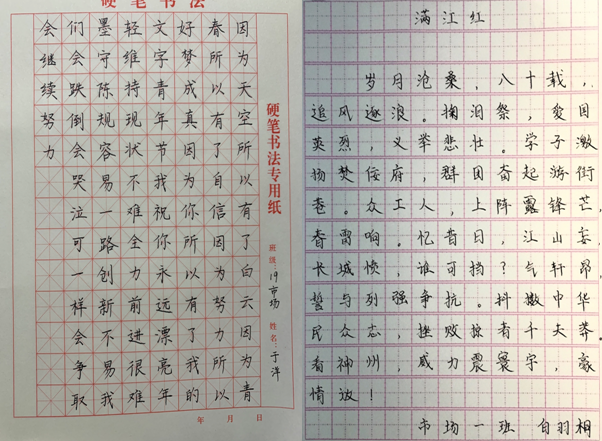 硬笔书法
因为天空所以有了白云因为青
春所以有了自信因为努力所以
好梦成真因为你所以有了我的
文字青年节我祝你永远漂亮年
轻维持现状不难全力前进很难
墨守陈规容易一路创新不易我
们会跌倒会哭泣可一样会争取
会继续努力
硬笔书法专用纸
班级 19市场 姓名：于洋
年 月 日
满江红
岁月沧桑，八十载，
追风逐浪。掬泪祭，爱国
英烈，义举悲壮。学子激
扬焚佞府，群团奋起游街
巷。众工人，上阵露锋芒，
春雷响。忆昔日，江山
长城愤，谁可挡？气轩昂
誓与列强争抗。抖擞中华
民众志，挫败掠者千夫莽。
看神州，威力震寰宇，豪
情放！
市场一班 白羽